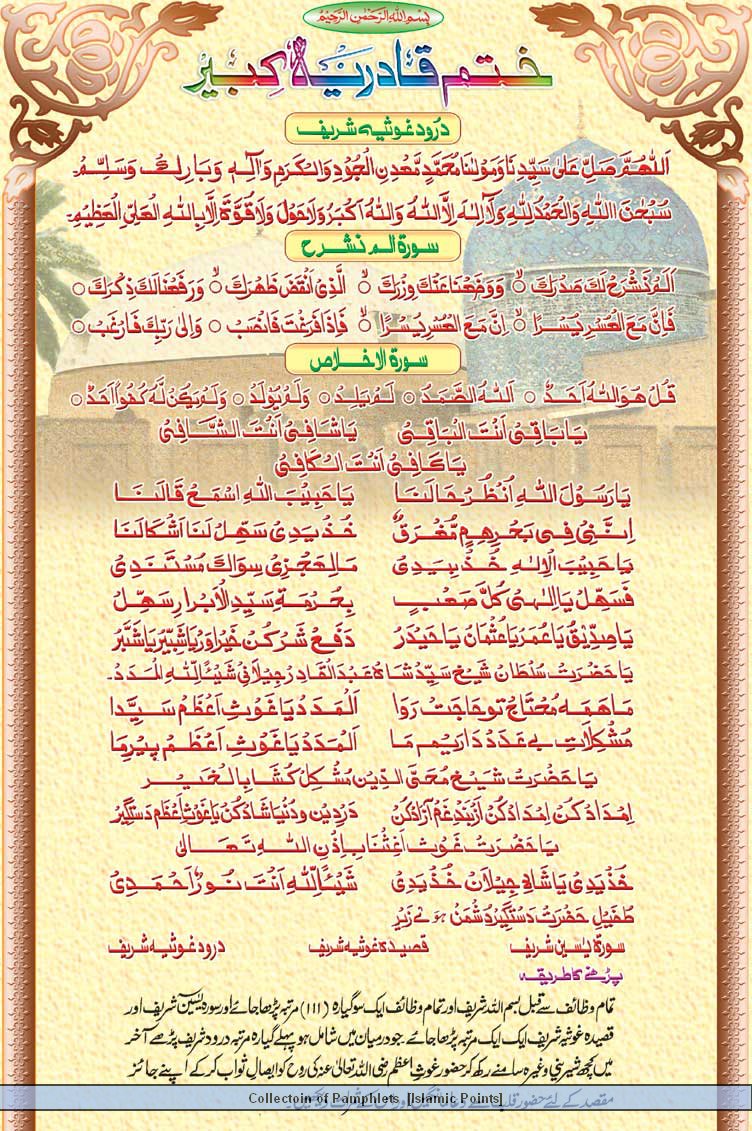 بسم الله الرحمن الرحيم
ختم قادریہ کبیر
درود غوثیہ شریف
اَللّٰهُمَّ صَلِّ عَلٰى سَيِّدِنَا وَمَوْلٰنَا مُحَمَّدٍ مَّعْدِنِ الْجُوْدِ وَالْكَرَمِ وَاٰلِهٖ وَبَارِكْ وَسَلِّمْ۔
سُبْحٰنَ اللّٰهِ وَالْحَمْدُ لِلّٰهِ وَلَآ اِلٰهَ اِلَّا اللّٰهُ وَاللّٰهُ اَكْبَرُ وَلَا حَوْلَ وَلَا قُوَّةَ اِلَّا بِاللّٰهِ الْعَلِيِّ الْعَظِيْمِ۔
سورۃ الم نشرح
اَلَمْ نَشْرَحْ لَكَ صَدْرَكَ ○ وَوَضَعْنَا عَنْكَ وِزْرَكَ ○ الَّذِيْ اَنْقَضَ ظَهْرَكَ ○ وَرَفَعْنَا لَكَ ذِكْرَكَ ○
فَاِنَّ مَعَ الْعُسْرِ يُسْرًا ○ اِنَّ مَعَ الْعُسْرِ يُسْرًا ○ فَاِذَا فَرَغْتَ فَانْصَبْ ○ وَاِلٰى رَبِّكَ فَارْغَبْ ○
سورۃ الاخلاص
قُلْ هُوَ اللّٰهُ اَحَدٌ ○ اَللّٰهُ الصَّمَدُ ○ لَمْ يَلِدْ ○ وَلَمْ يُوْلَدْ ○ وَلَمْ يَكُنْ لَّهٗ كُفُوًا اَحَدٌ ○
يَا بَاقِيْ اَنْتَ الْبَاقِيْ يَا شَافِيْ اَنْتَ الشَّافِيْ
يَا كَافِيْ اَنْتَ الْكَافِيْ
يَا رَسُوْلَ اللّٰهِ اُنْظُرْ حَالَنَا يَا حَبِيْبَ اللّٰهِ اِسْمَعْ قَالَنَا
اِنَّنِيْ فِيْ بَحْرِ هَمٍّ مُّغْرَقٌ خُذْ يَدِيْ سَهِّلْ لَنَا اَشْكَالَنَا
يَا حَبِيْبَ الْاِلٰهِ خُذْ بِيَدِيْ مَا لِعَجْزِيْ سِوَاكَ مُسْتَنَدِيْ
فَسَهِّلْ يَا اِلٰهِيْ كُلَّ صَعْبٍ بِحُرْمَةِ سَيِّدِ الْاَبْرَارِ سَهِّلْ
يَا صِدِّيْقُ يَا عُمَرُ يَا عُثْمَانُ يَا حَيْدَرُ دَفْعِ شَرْ كُنْ خَيْر آوَرْ يَا شَبِّيْرُ يَا شَبَّرُ
يَا حَضْرَتْ سُلْطَانْ شَيْخْ سَيِّدْ شَاہ عَبْدَ الْقَادِرْ جِيْلَانِيْ شَيْئًا لِلّٰهِ الْمَدَدْ۔
مَا هَمَه مُحْتَاجْ تُو حَاجَتْ رَوَا اَلْمَدَدْ يَا غَوْثِ اَعْظَمْ سَيِّدَا
مُشْكِلَاتِ بے عَدَدْ دَارِيْم مَا اَلْمَدَدْ يَا غَوْثِ اَعْظَمْ پِيْرِ مَا
يَا حَضْرَتْ شَيْخْ مُحِيَّ الدِّيْنِ مُشْكِلْ كُشَا بِالْخَيْر
اِمْدَادْ كُنْ اِمْدَادْ كُنْ اَزْ بَنْدِ غَمْ آزَادْ كُنْ دَرْ دِيْنْ وَ دُنْيَا شَادْ كُنْ يَا غَوْثِ اَعْظَمْ دَسْتَگِيْر
يَا حَضْرَتْ غَوْثْ اَغِثْنَا بِاِذْنِ اللّٰهِ تَعَالٰى
خُذْ يَدِيْ يَا شَاہِ جِيْلَانْ خُذْ يَدِيْ شَيْئًا لِلّٰهِ اَنْتَ نُوْرٌ اَحْمَدِيْ
طُفَيْلِ حَضْرَتْ دَسْتَگِيْرْ دُشْمَنْ ہوئے زَيْر
سورۃ یٰسین شریف قصیدہ غوثیہ شریف درود غوثیہ شریف
پڑھنے کا طریقہ
تمام وظائف سے قبل بسم اللہ شریف اور تمام وظائف ایک سو گیارہ (۱۱۱) مرتبہ پڑھا جائے اور سورہ یٰسین شریف اور
قصیدہ غوثیہ شریف ایک ایک مرتبہ پڑھا جائے جو درمیان میں شامل ہو پہلے گیارہ مرتبہ درود شریف پڑھے آخر
میں کچھ شیرینی وغیرہ سامنے رکھ کر حضور غوث اعظم رضی اللہ تعالیٰ عنہ کی روح کو ایصال ثواب کر کے اپنے جائز
مقصد کے لئے حضور قلب سے
Collectoin of Pamphlets [Islamic Points]